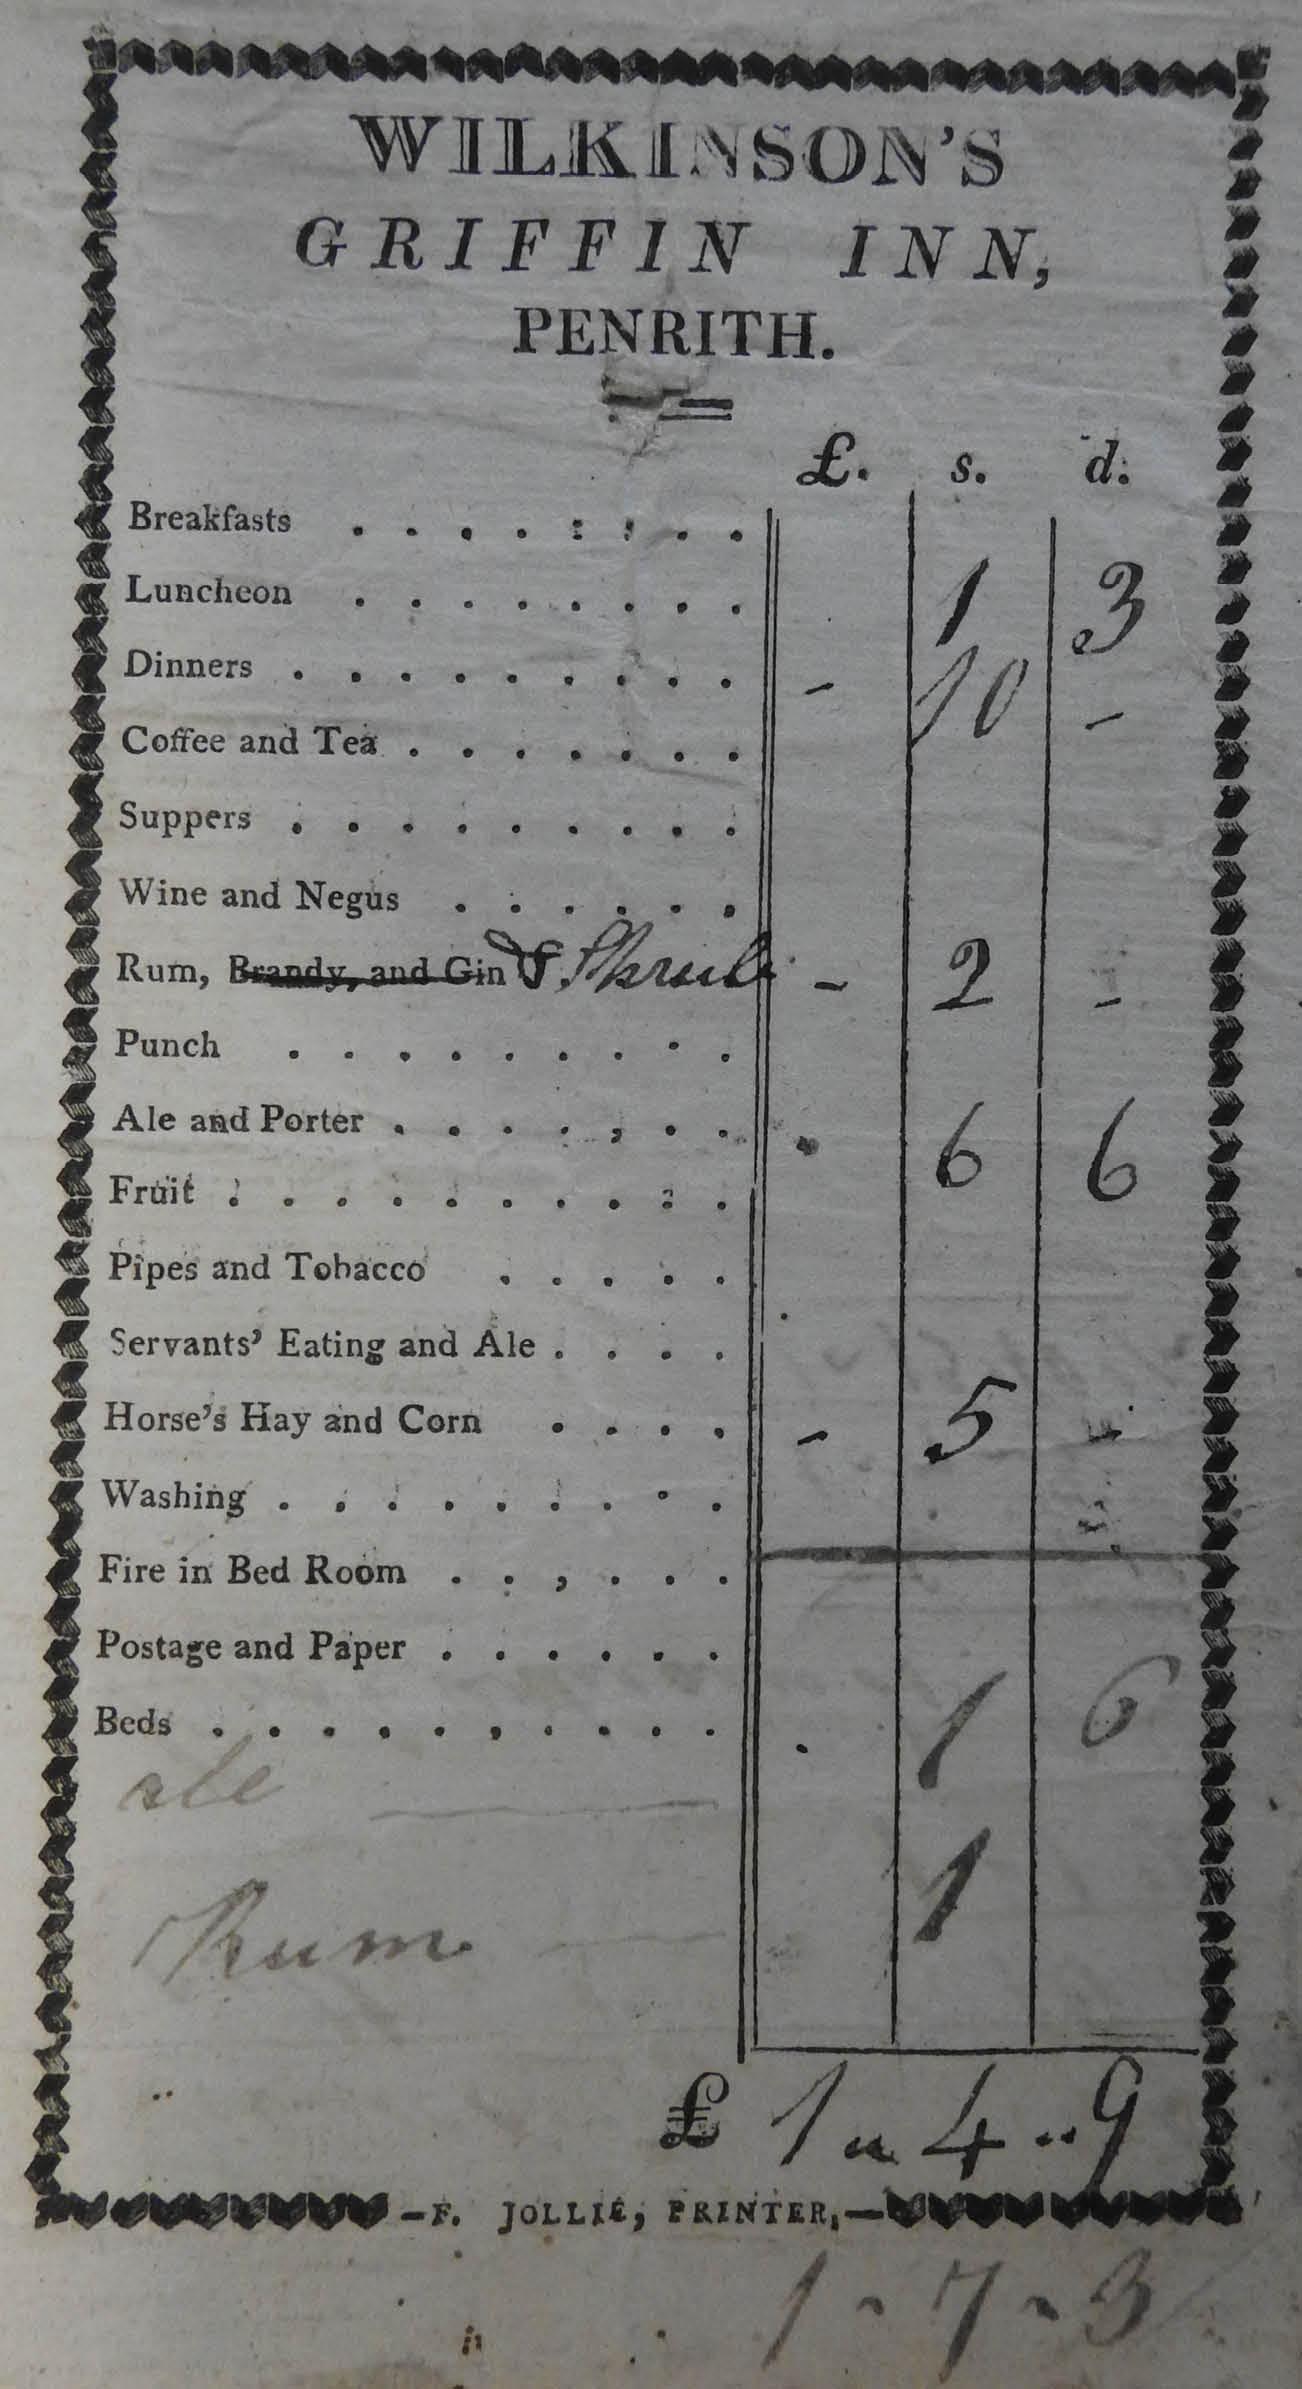 WILKINSON'S
GRIFFIN INN,
PENRITH.
£. s. d.
Breakfasts
Luncheon 1 3
Dinners - 10 -
Coffee and Tea
Suppers
Wine and Negus
Rum, Brandy, and Gin & Shrub - 2 -
Punch
Ale and Porter 6 6
Fruit
Pipes and Tobacco
Servants' Eating and Ale
Horse's Hay and Corn - 5 -
Washing
Fire in Bed Room
Postage and Paper
Beds
ale 1 6
Rum 1
£ 1 " 4 " 9
-F. JOLLIE, PRINTER,-
1 - 7 - 3